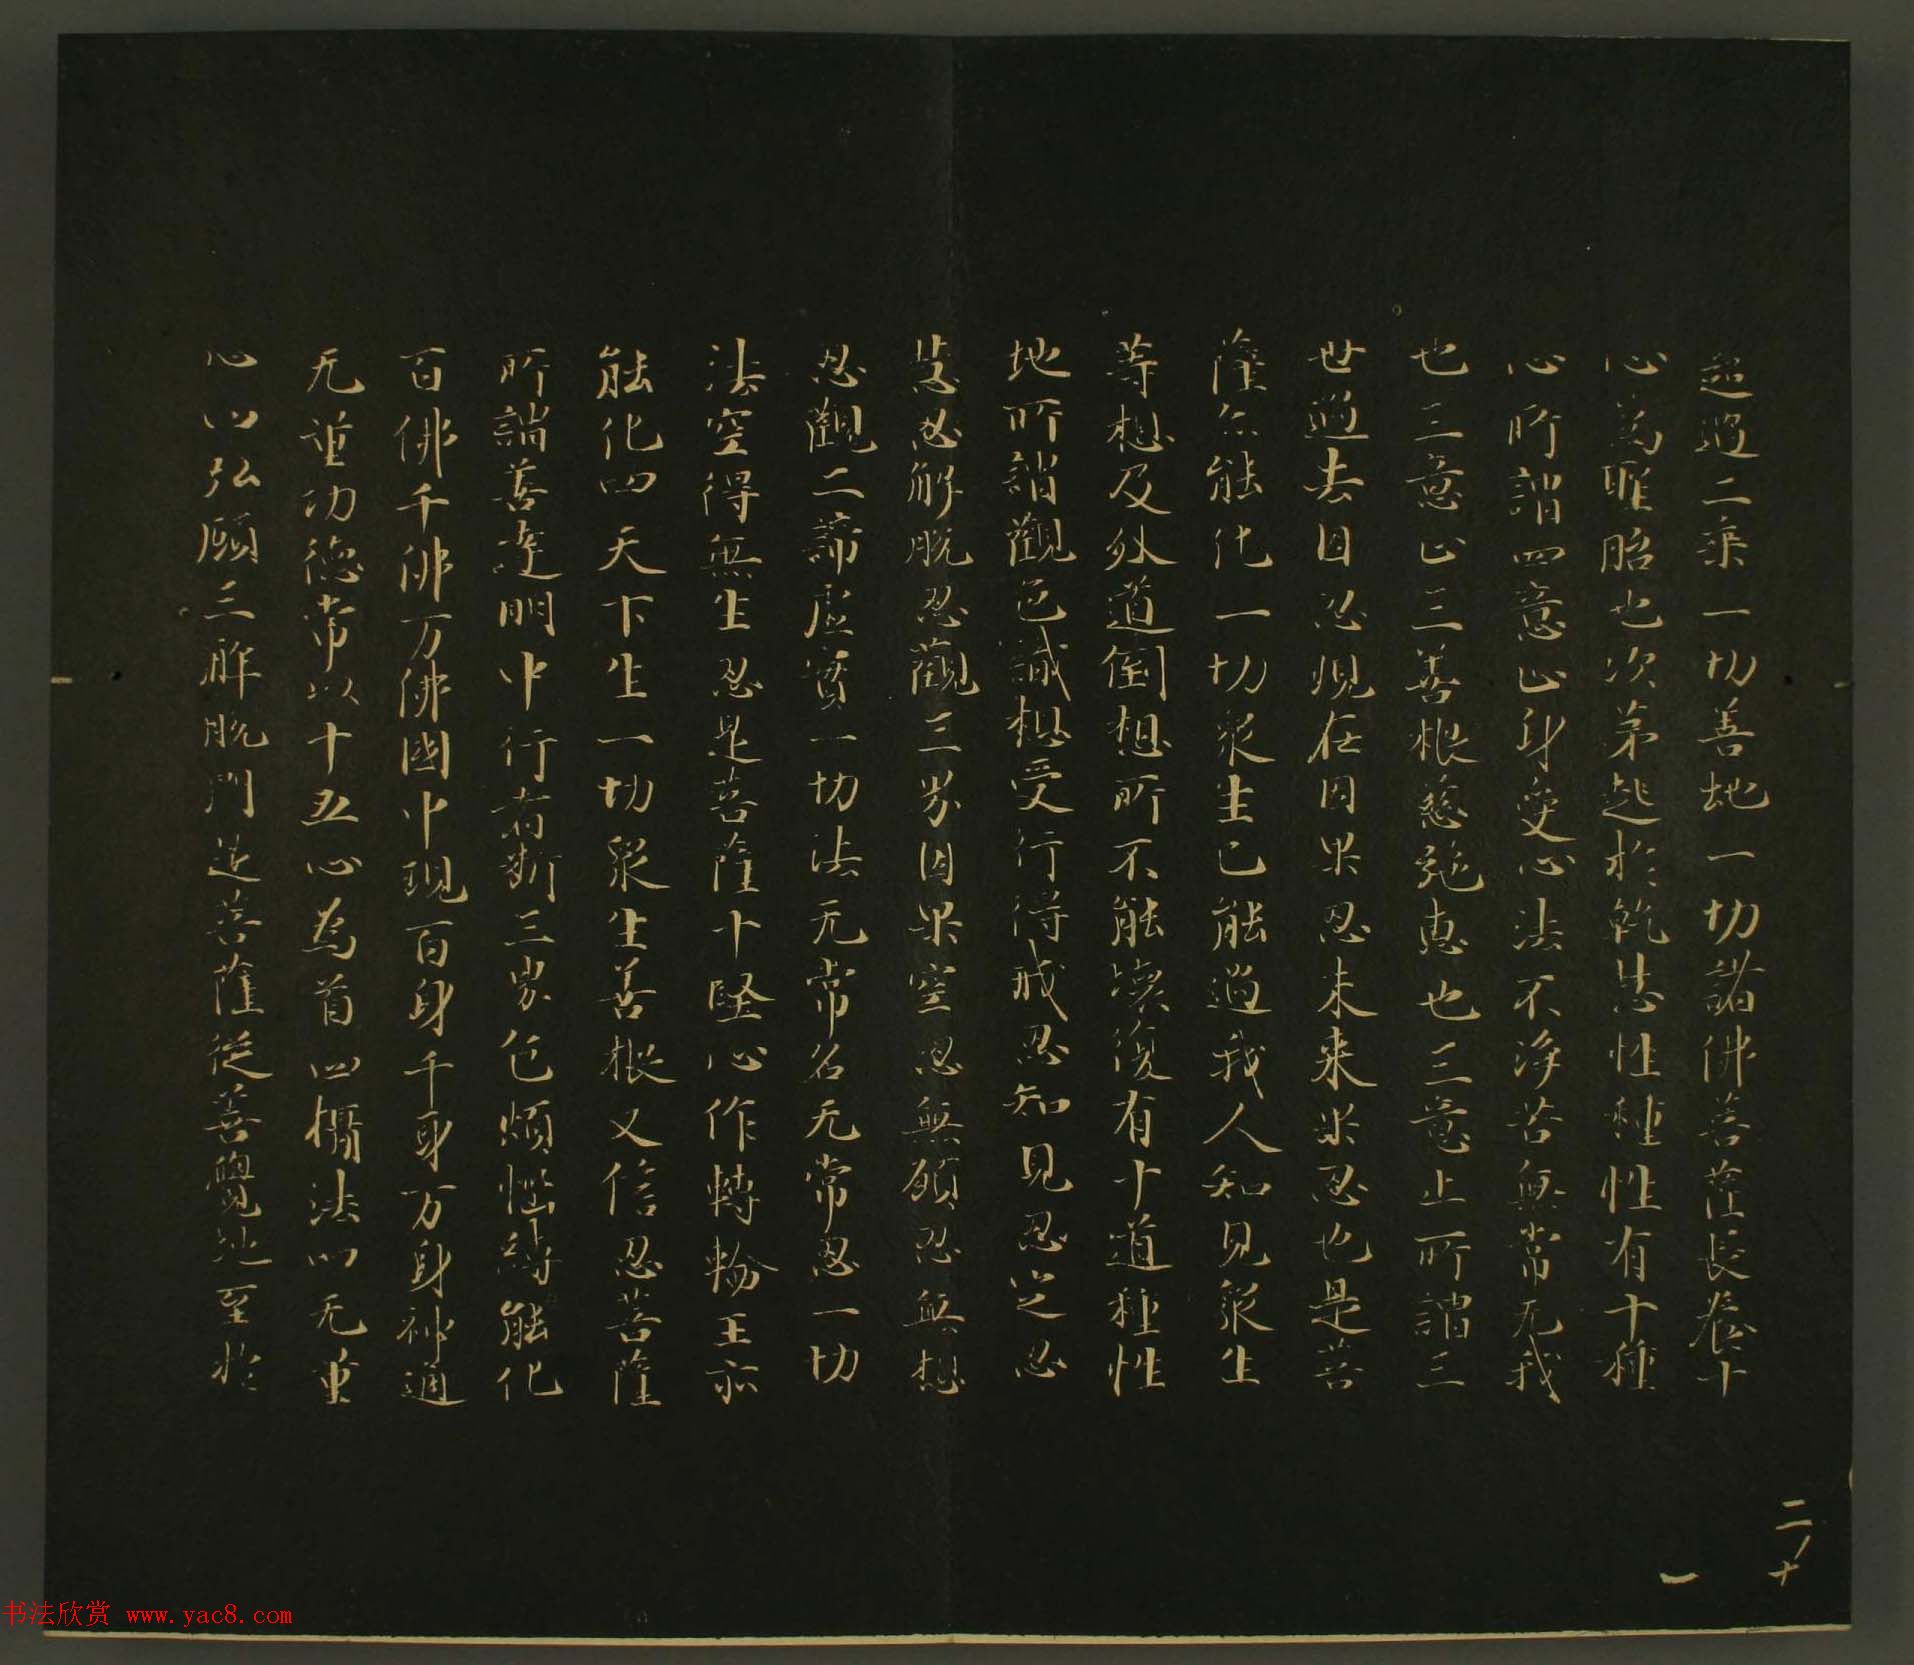 超過二乗一切善地一切諸佛菩薩長養十
心為聖胎也次第起於乾慧性種性有十種
心所謂四意止身受心法不淨苦無常无我
也三意止三善根慈施惠也三意止所謂三
世過去因忍現在因果忍未来果忍也是菩
薩亦能化一切衆生已能過我人知見衆生
等想及外道倒想所不能壞復有十道種性
地所謂觀色識想受行得戒忍知見忍定忍
慧忍解脱忍觀三界因果空忍無願忍無想
忍觀二諦虚實一切法无常名无常忍一切
法空得無生忍是菩薩十堅心作轉輪王亦
能化四天下生一切衆生善根又信忍菩薩
所謂善達明中行者斷三界色煩惱縛能化
百佛千佛万佛國中現百身千身万身神通
无量功德常以十五心為首四攝法四无量
心四弘願三解脱門是菩薩從善覺地至於
二ノ十
一
书法欣赏 www.yac8.com